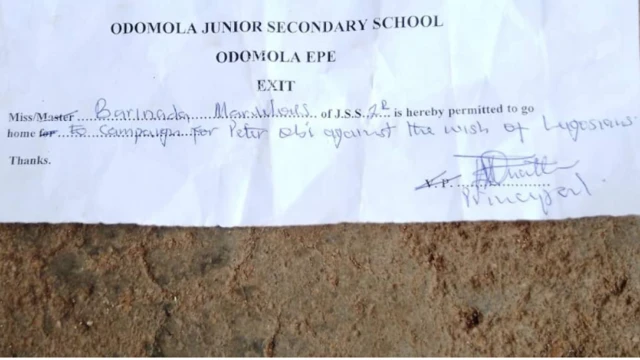 ODOMOLA JUNIOR SECONDARY SCHOOL
ODOMOLA EPE
EXIT
Miss/Master Barinada of J.S.S. is hereby permitted to go
home for to campaign for Peter Obi against the wish of Lagosians.
Thanks.
V.P.
Principal.